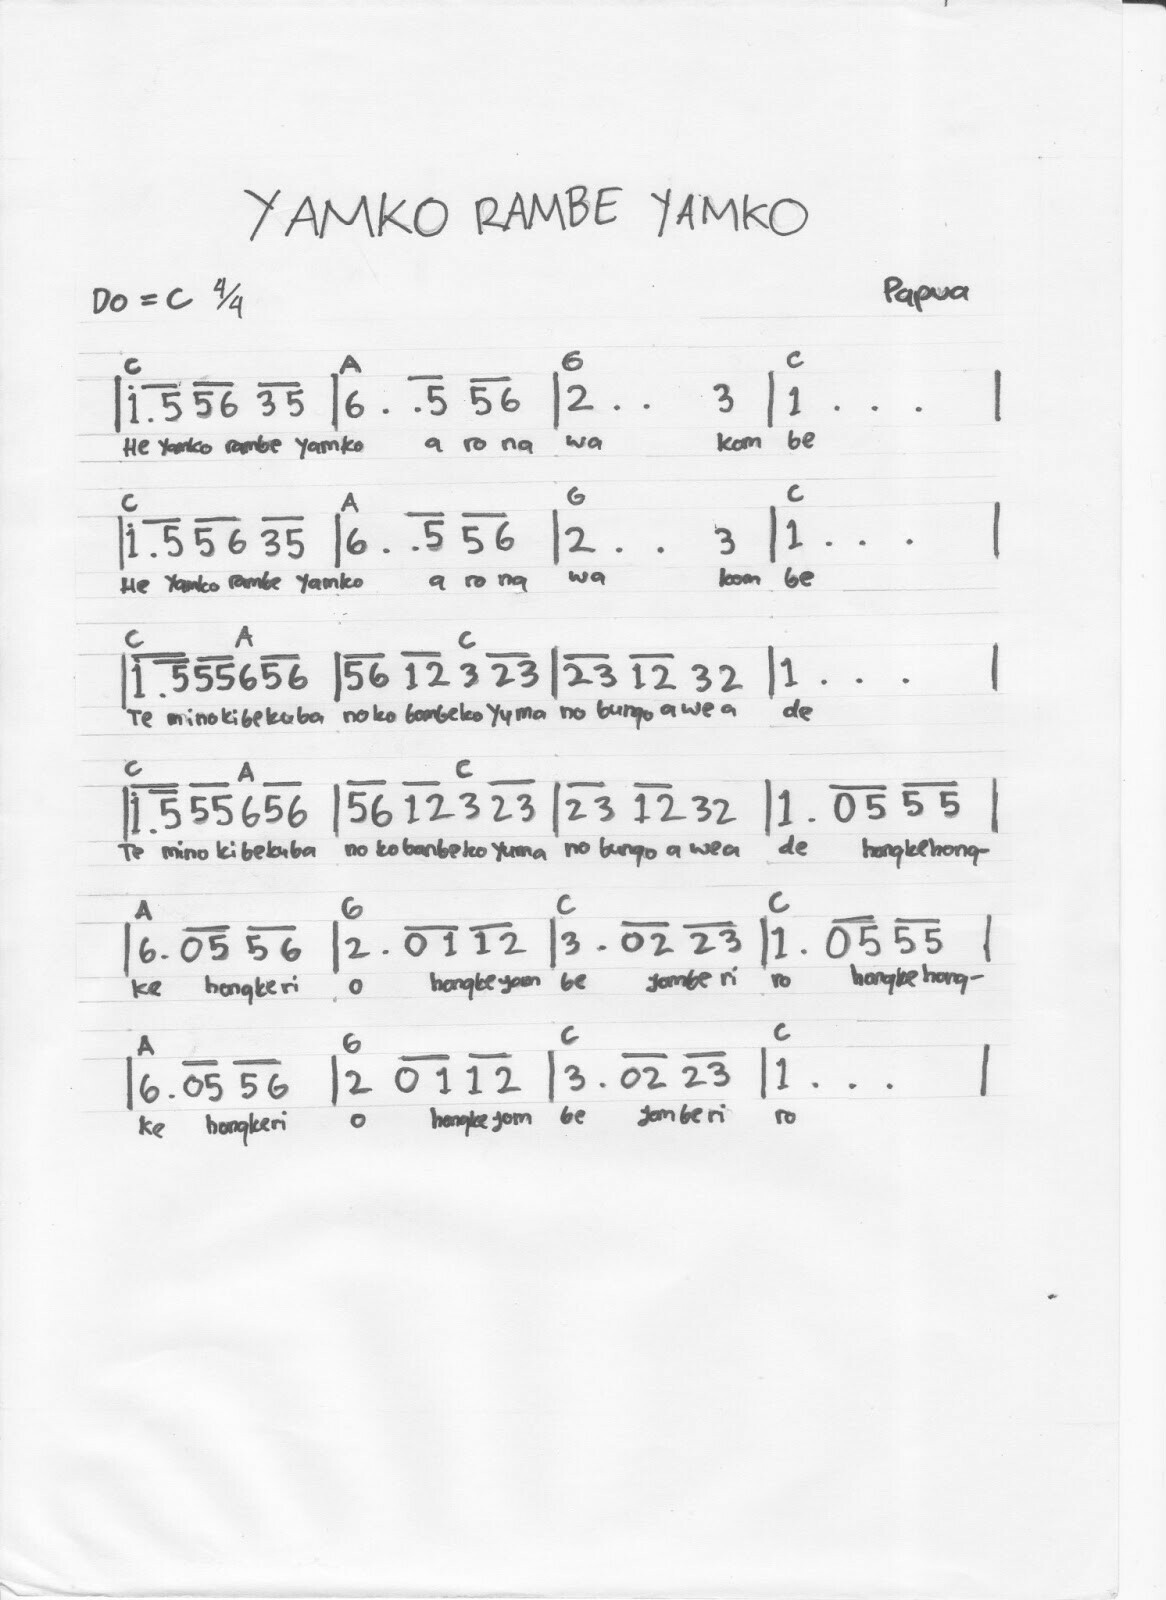 YAMKO RAMBE YAMKO
Do = C 4/4 Papua
C A G C
|1̇ . 5 56 35 |6 . .5 56 |2 . . 3 |1 . . . |
He Yamko rambe Yamko a ro na wa kom be
C A G C
|1̇ . 5 56 35 |6 . .5 56 |2 . . 3 |1 . . . |
He Yamko rambe Yamko a ro na wa kom be
C A C
|1̇ . 5 55 6 56 |56 12 3 23 |23 12 32 |1 . . . |
Te mino kibekuba no ko bambeko Yuma no bungo a we a de
C A C
|1̇ . 5 55 6 56 |56 12 3 23 |23 12 32 |1 . 05 55 |
Te mino kibekuba no ko banbeko Yuma no bungo a wea de hongkehong-
A G C C
|6 . 05 56 |2 . 01 12 |3 . 02 23 |1 . 05 55 |
ke hongkeri o hongkeyom be yomberi ro hongkehong-
A G C C
|6 . 05 56 |2 01 12 |3 . 02 23 |1 . . . |
ke hongkeri o hongkeyom be yomberi ro